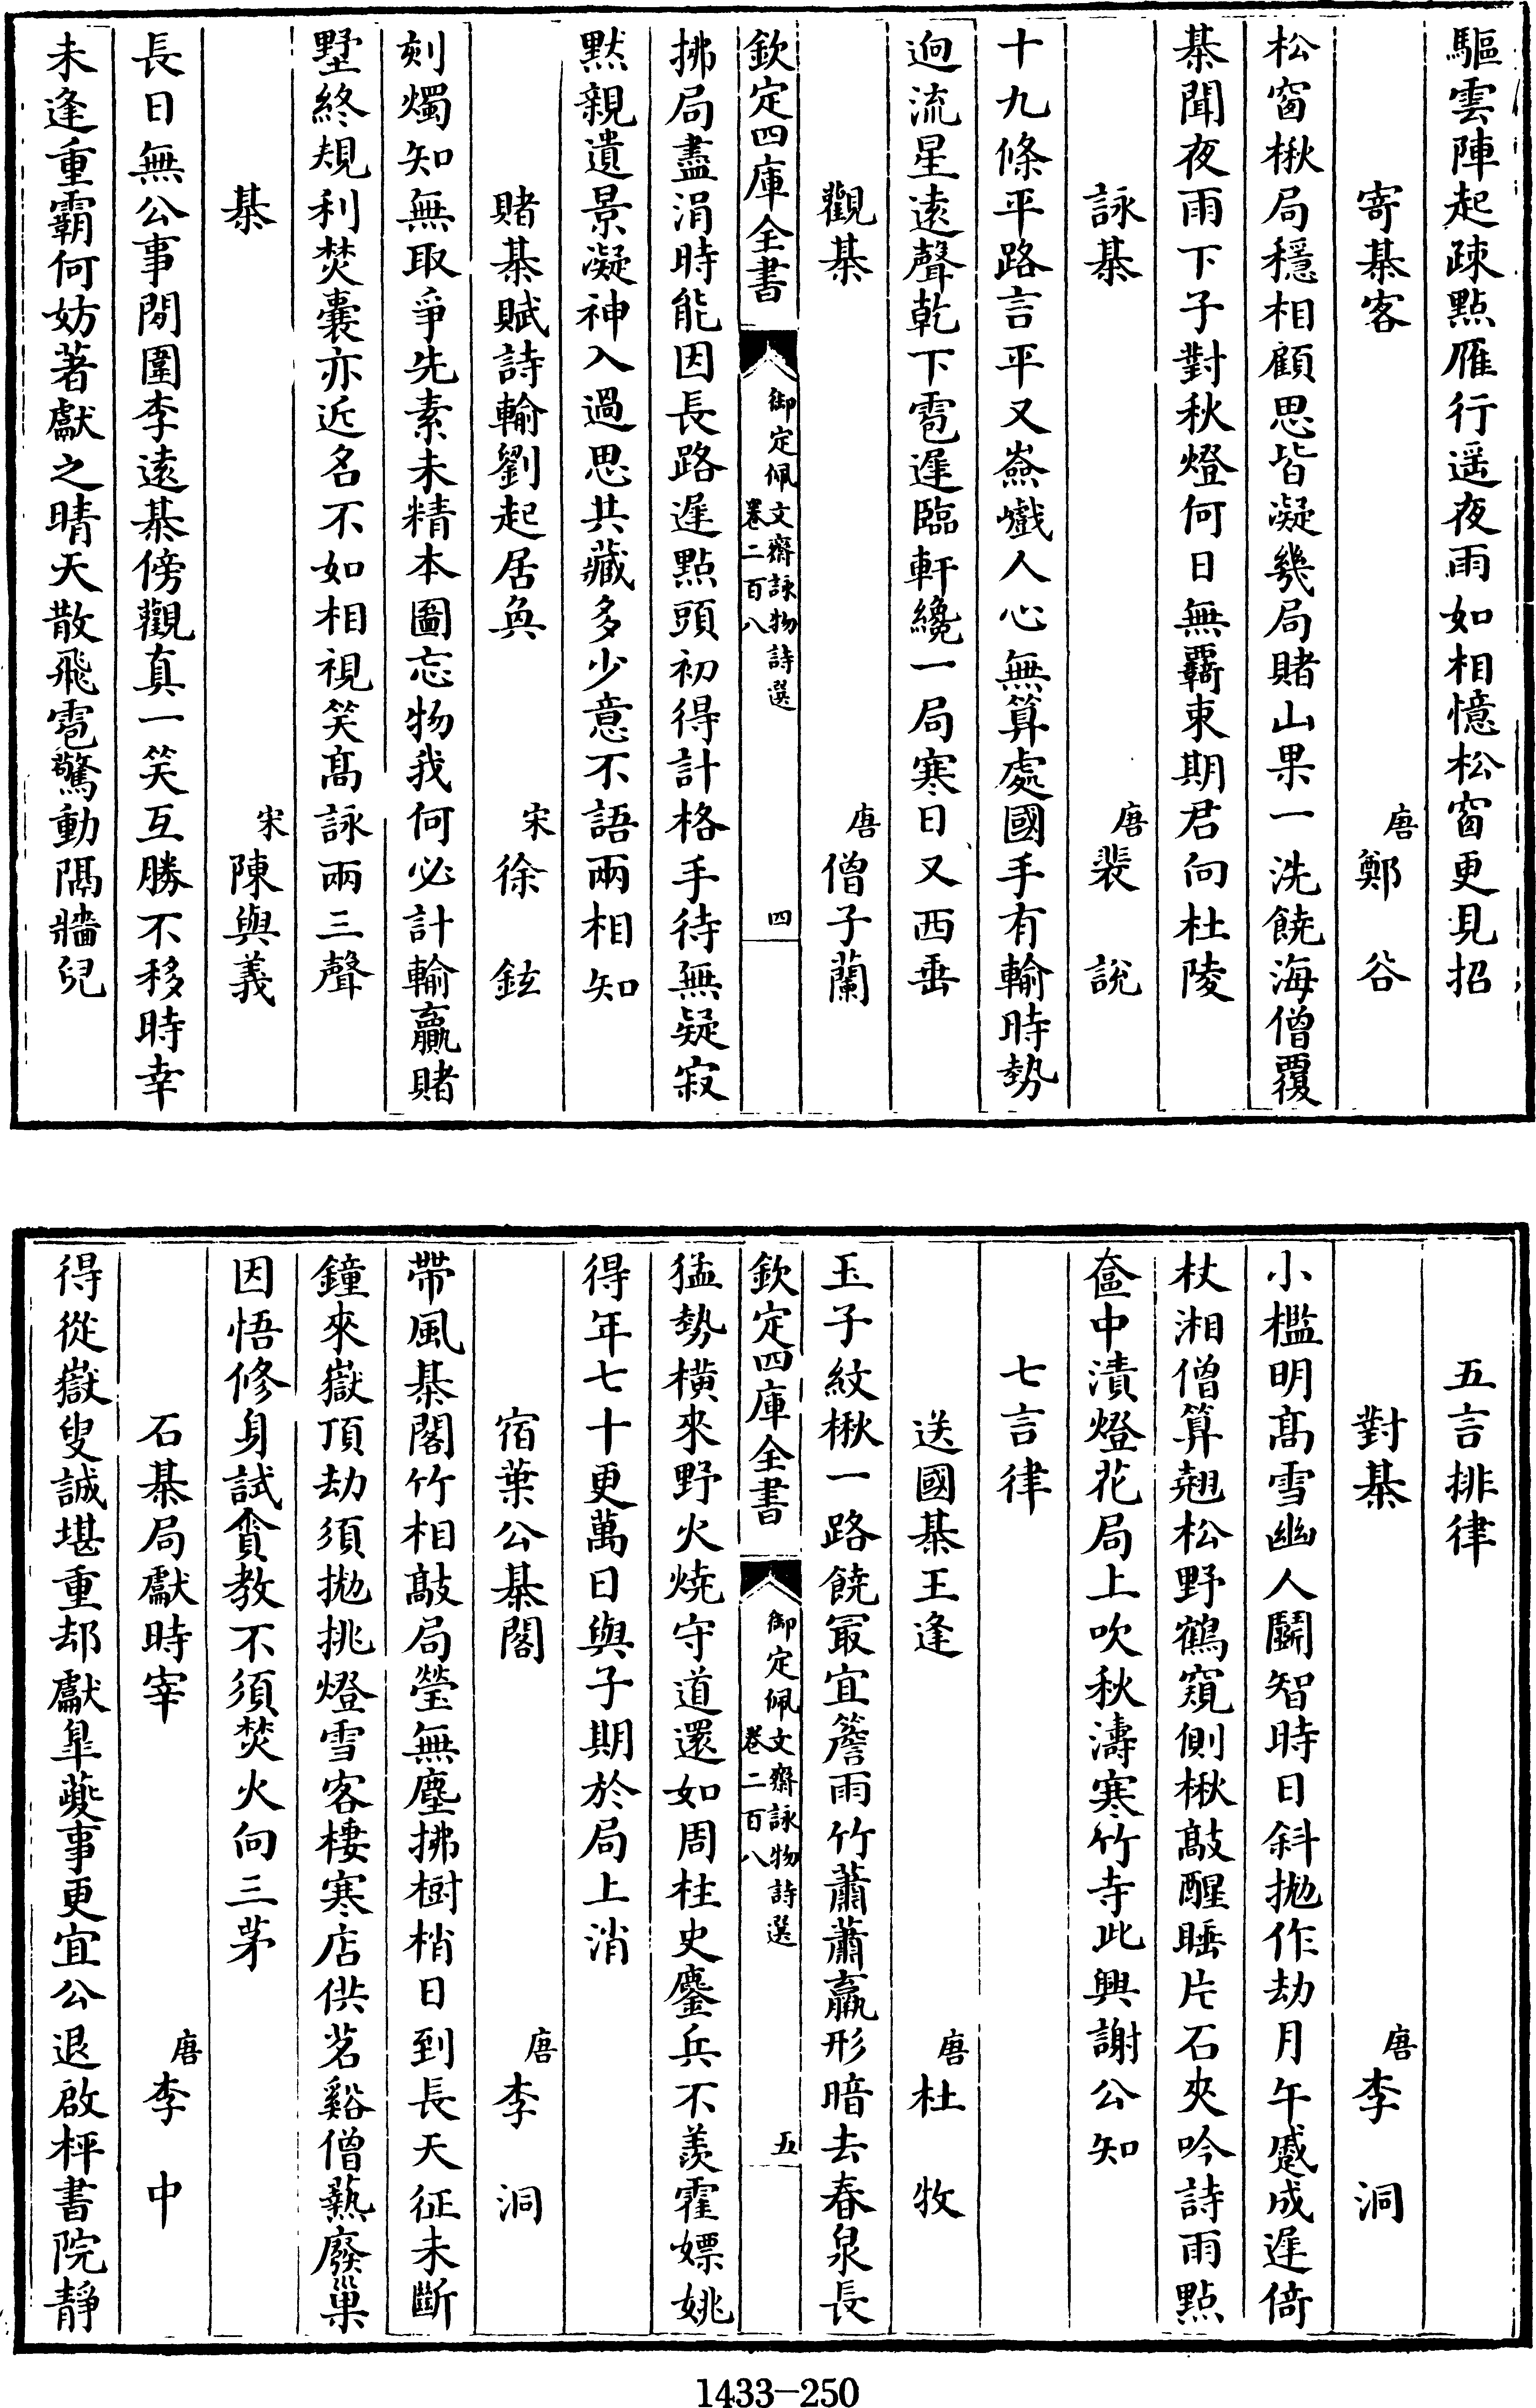 驅雲陣起疎點雁行遥夜雨如相憶松窗更見招
寄棊客 唐 鄭谷
松窗楸局穩相顧思皆凝幾局賭山果一洗饒海僧覆
棊聞夜雨下子對秋燈何日無羈束期君向杜陵
詠棊 唐 裴説
十九條平路言平又嶮巇人心無算處國手有輸時勢
迥流星遠聲乾下雹遲臨軒纔一局寒日又西垂
觀棊 唐 僧子蘭
欽定四庫全書 御定佩文齋詠物詩選 卷二百八 四
拂局盡涓時能因長路遲點頭初得計格手待無疑寂
黙親遺景凝神入過思共藏多少意不語兩相知
賭棊賦詩輸劉起居奐 宋 徐鉉
刻燭知無取爭先素未精本圖忘物我何必計輸贏賭
墅終規利焚囊亦近名不如相視笑髙詠兩三聲
棊 宋 陳與義
長日無公事閒圍李遠棊傍觀真一笑互勝不移時幸
未逢重霸何妨著獻之晴天散飛雹驚動隔牆兒
五言排律
對棊 唐 李洞
小檻明髙雪幽人鬬智時日斜抛作劫月午蹙成遲倚
杖湘僧算翹松野鶴窺側楸敲醒睡片石夾吟詩雨點
奩中漬燈花局上吹秋濤寒竹寺此興謝公知
七言律
送國棊王逢 唐 杜牧
玉子紋楸一路饒最宜簷雨竹蕭蕭羸形暗去春泉長
欽定四庫全書 御定佩文齋詠物詩選 卷二百八 五
猛勢横來野火燒守道還如周柱史鏖兵不羨霍嫖姚
得年七十更萬日與子期於局上消
宿葉公棊閣 唐 李洞
帶風棊閣竹相敲局瑩無塵拂樹梢日到長天征未斷
鐘來嶽頂劫須抛挑燈雪客棲寒店供茗谿僧爇廢巢
因悟修身試貪教不須焚火向三茅
石棊局獻時宰 唐 李中
得從嶽叟誠堪重却獻臯夔事更宜公退啟枰書院靜
1433-250